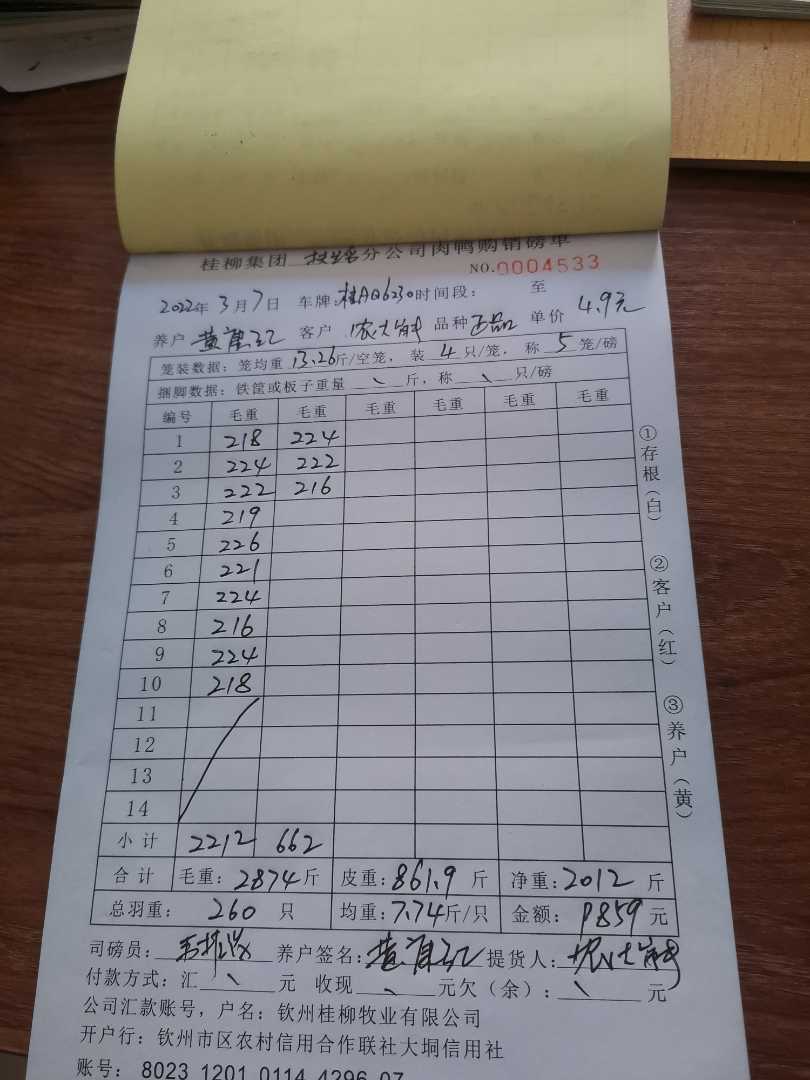 桂柳集团 分公司肉鸭购销磅单
NO.0004533
2022年 3月7日 车牌:桂AQ6230 时间段: 至
养户 黄 客户 农 品种 正品 单价 4.9元
笼装数据: 笼均重 13.26斤/空笼, 装 4 只/笼, 称 5 笼/磅
捆脚数据: 铁筐或板子重量 \ 斤, 称 \ 只/磅
编号 毛重 毛重 毛重 毛重 毛重 毛重
1 218 224
2 224 222
3 222 216
4 219
5 226
6 221
7 224
8 216
9 224
10 218
11
12
13
14
小计 2212 662
合计 毛重: 2874斤 皮重: 861.9 斤 净重: 2012 斤
总羽重: 260 只 均重: 7.74斤/只 金额: 9859 元
司磅员: 养户签名: 黄 提货人:
付款方式: 汇 \ 元 收现 \ 元 欠(余): \ 元
公司汇款账号, 户名: 钦州桂柳牧业有限公司
开户行: 钦州市区农村信用合作联社大垌信用社
账号: 8023 1201 0114 4296 07
①存根(白)
②客户(红)
③养户(黄)